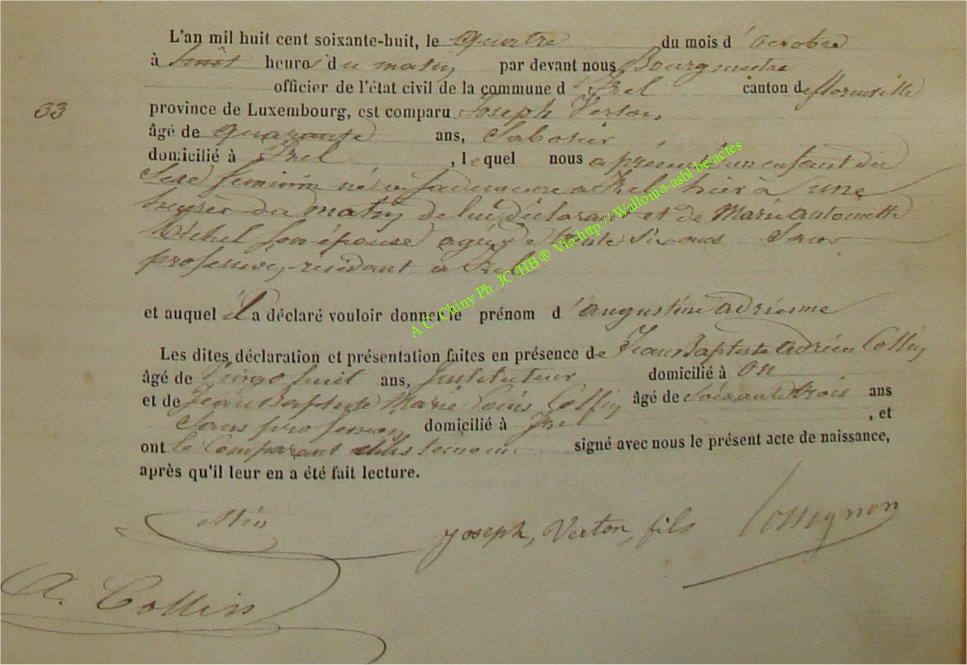 L'an mil huit cent soixante-huit, le quatre du mois d'octobre
à huit heures du matin par devant nous Bourgmestre
officier de l'état civil de la commune d'Izel canton de florenville
33
province de Luxembourg, est comparu Joseph Verton,
âgé de quarante ans, Sabotier
domicilié à Izel, lequel nous a présenté un enfant du
Sexe féminin à Izel hier à une
heure du matin de lui déclarant et de Marie antoinette
Michel Son épouse agée de trente Six ans Sans
profession, résidant à Izel
et auquel il a déclaré vouloir donner le prénom d'augustine adrienne
Les dites déclaration et présentation faites en présence de Jean Baptiste adrien Collin
âgé de vingt huit ans, Instituteur domicilié à On
et de Jean Baptiste Marie Louis Collin âgé de Soixante trois ans
Sans profession domicilié à Izel, et
ont le Comparant et les temoins signé avec nous le présent acte de naissance,
après qu'il leur en a été fait lecture.
Collin Joseph, Verton, fils
A. Collin
A C Chiny Ph JC HB ® Via http:// Wallonia-asbl.be/actes